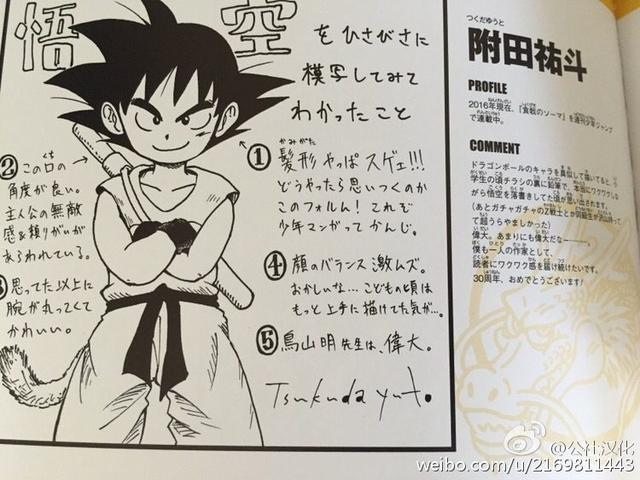 悟空
をひさびさに
模写してみて
わかったこと
①髪形やっぱスゲェ!!!
かみがた
どうやったら思いつくのか
このフォルム！これぞ
少年マンガってかんじ。
②この口の
角度が良い。
主人公の無敵
感&頼りがいが
あらわれている。
③思ってた以上に
腕が丸っくてくて
かわいい。
④顔のバランス激ムズ。
おかしいな…こどもの頃は
もっと上手に描けてた気が…。
⑤鳥山明先生は、偉大。
Tsukuda yuto.
つくだゆうと
附田祐斗
PROFILE
2016年現在、『食戟のソーマ』を週刊少年ジャンプ
で連載中。
COMMENT
ドラゴンボールのキャラを真似して描いてると、
学生の頃チラシの裏に鉛筆で、本当にワクワクしな
がら悟空を落書きしてた頃が思い出されます。
(あとガチャガチャのZ戦士とか
って超うらやましかった)
偉大。あまりにも偉大だな———。
僕も一人の作家として、
読者にワクワク感を届け続けたいです。
30周年、おめでとうございます!
@公社汉化
weibo.com/u/2169811443